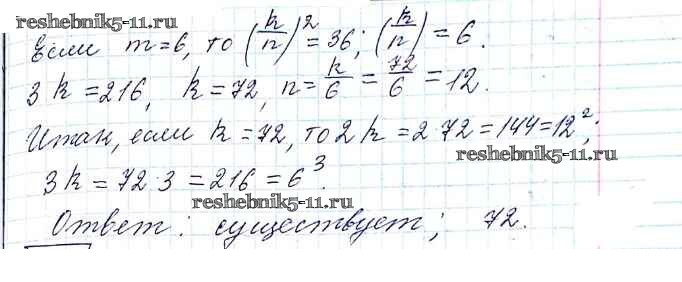 reshebnik5-11.ru
reshebnik5-11.ru
Если m=6, то (k/n)² = 36; (k/n) = 6.
3k = 216, k = 72, n = k/6 = 72/6 = 12.
Итак, если k = 72, то 2k = 2·72 = 144 = 12²;
reshebnik5-11.ru
3k = 72·3 = 216 = 6³.
reshebnik5-11.ru
Ответ: существует; 72.